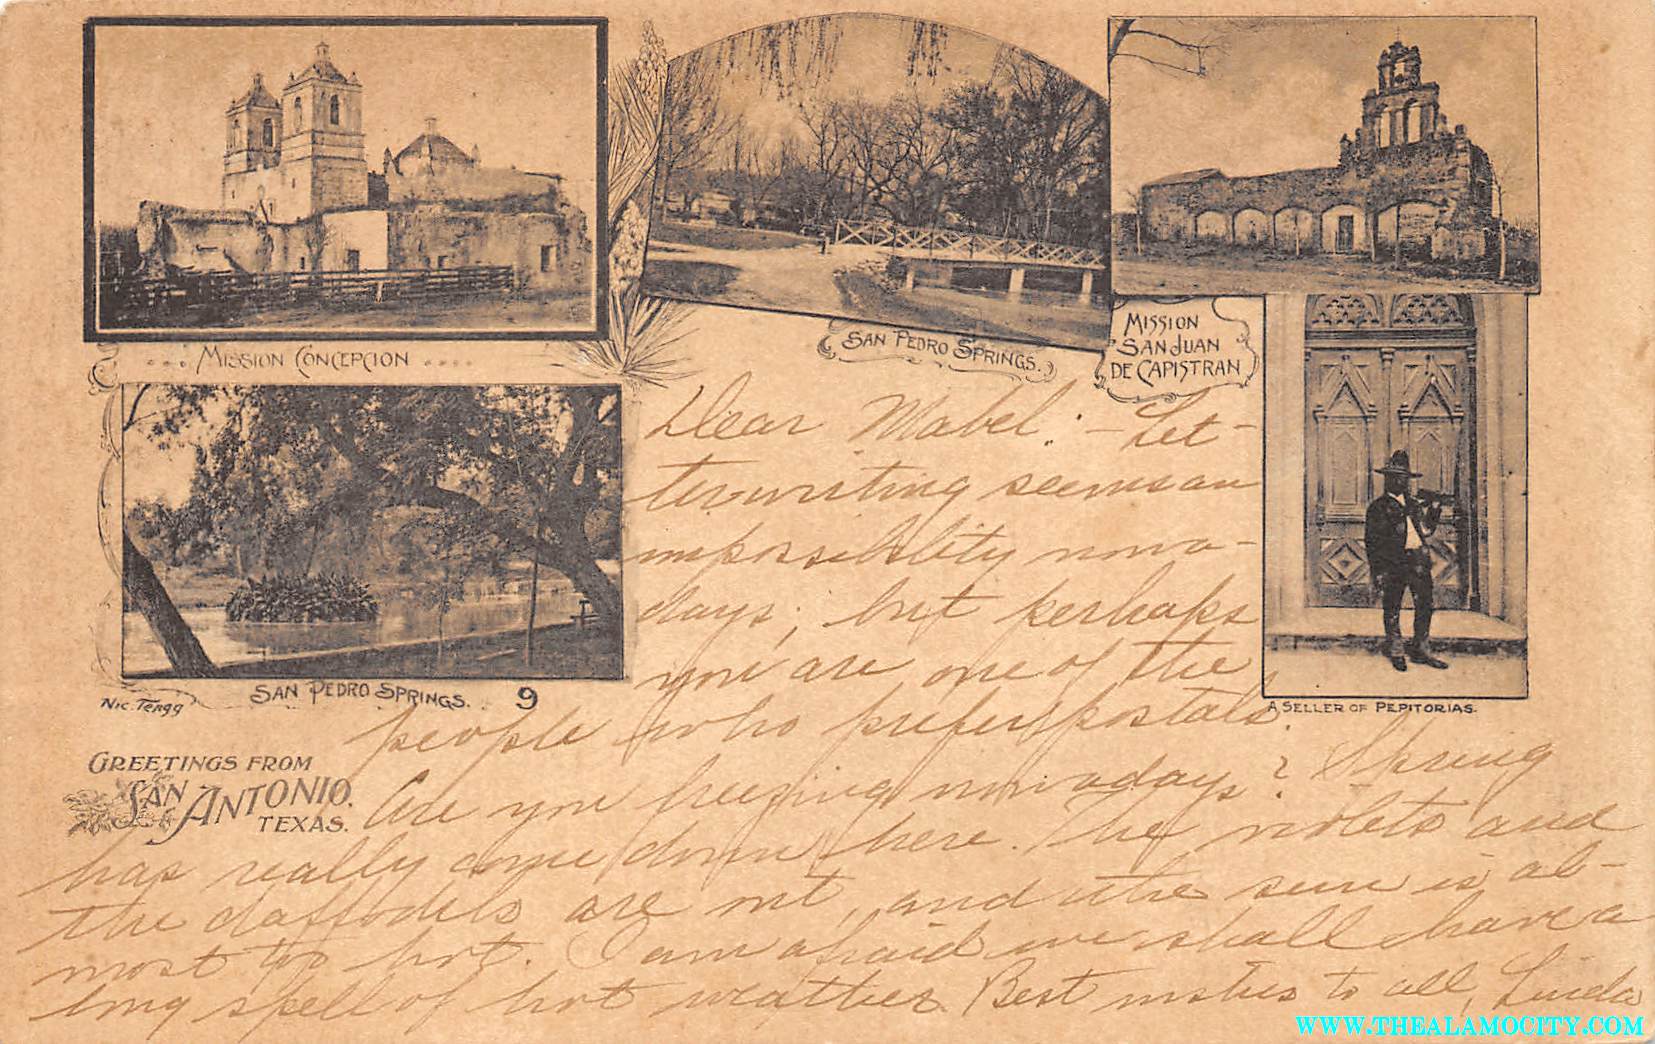 MISSION CONCEPCION
SAN PEDRO SPRINGS.
MISSION
SAN JUAN
DE CAPISTRAN
SAN PEDRO SPRINGS. 9
NIC. TENGG
A SELLER OF PEPITORIAS.
GREETINGS FROM
SAN ANTONIO,
TEXAS.
Dear Mabel: - Let-
terwriting seems an
impossibility nowa-
days; but perhaps
you are one of the
people who prefer postals.
Are you freezing nowadays? Spring
has really come down here. The violets and
the daffodils are out, and the sun is al-
most too hot. I am afraid we shall have a
long spell of hot weather. Best wishes to all, Linda
WWW.THEALAMOCITY.COM